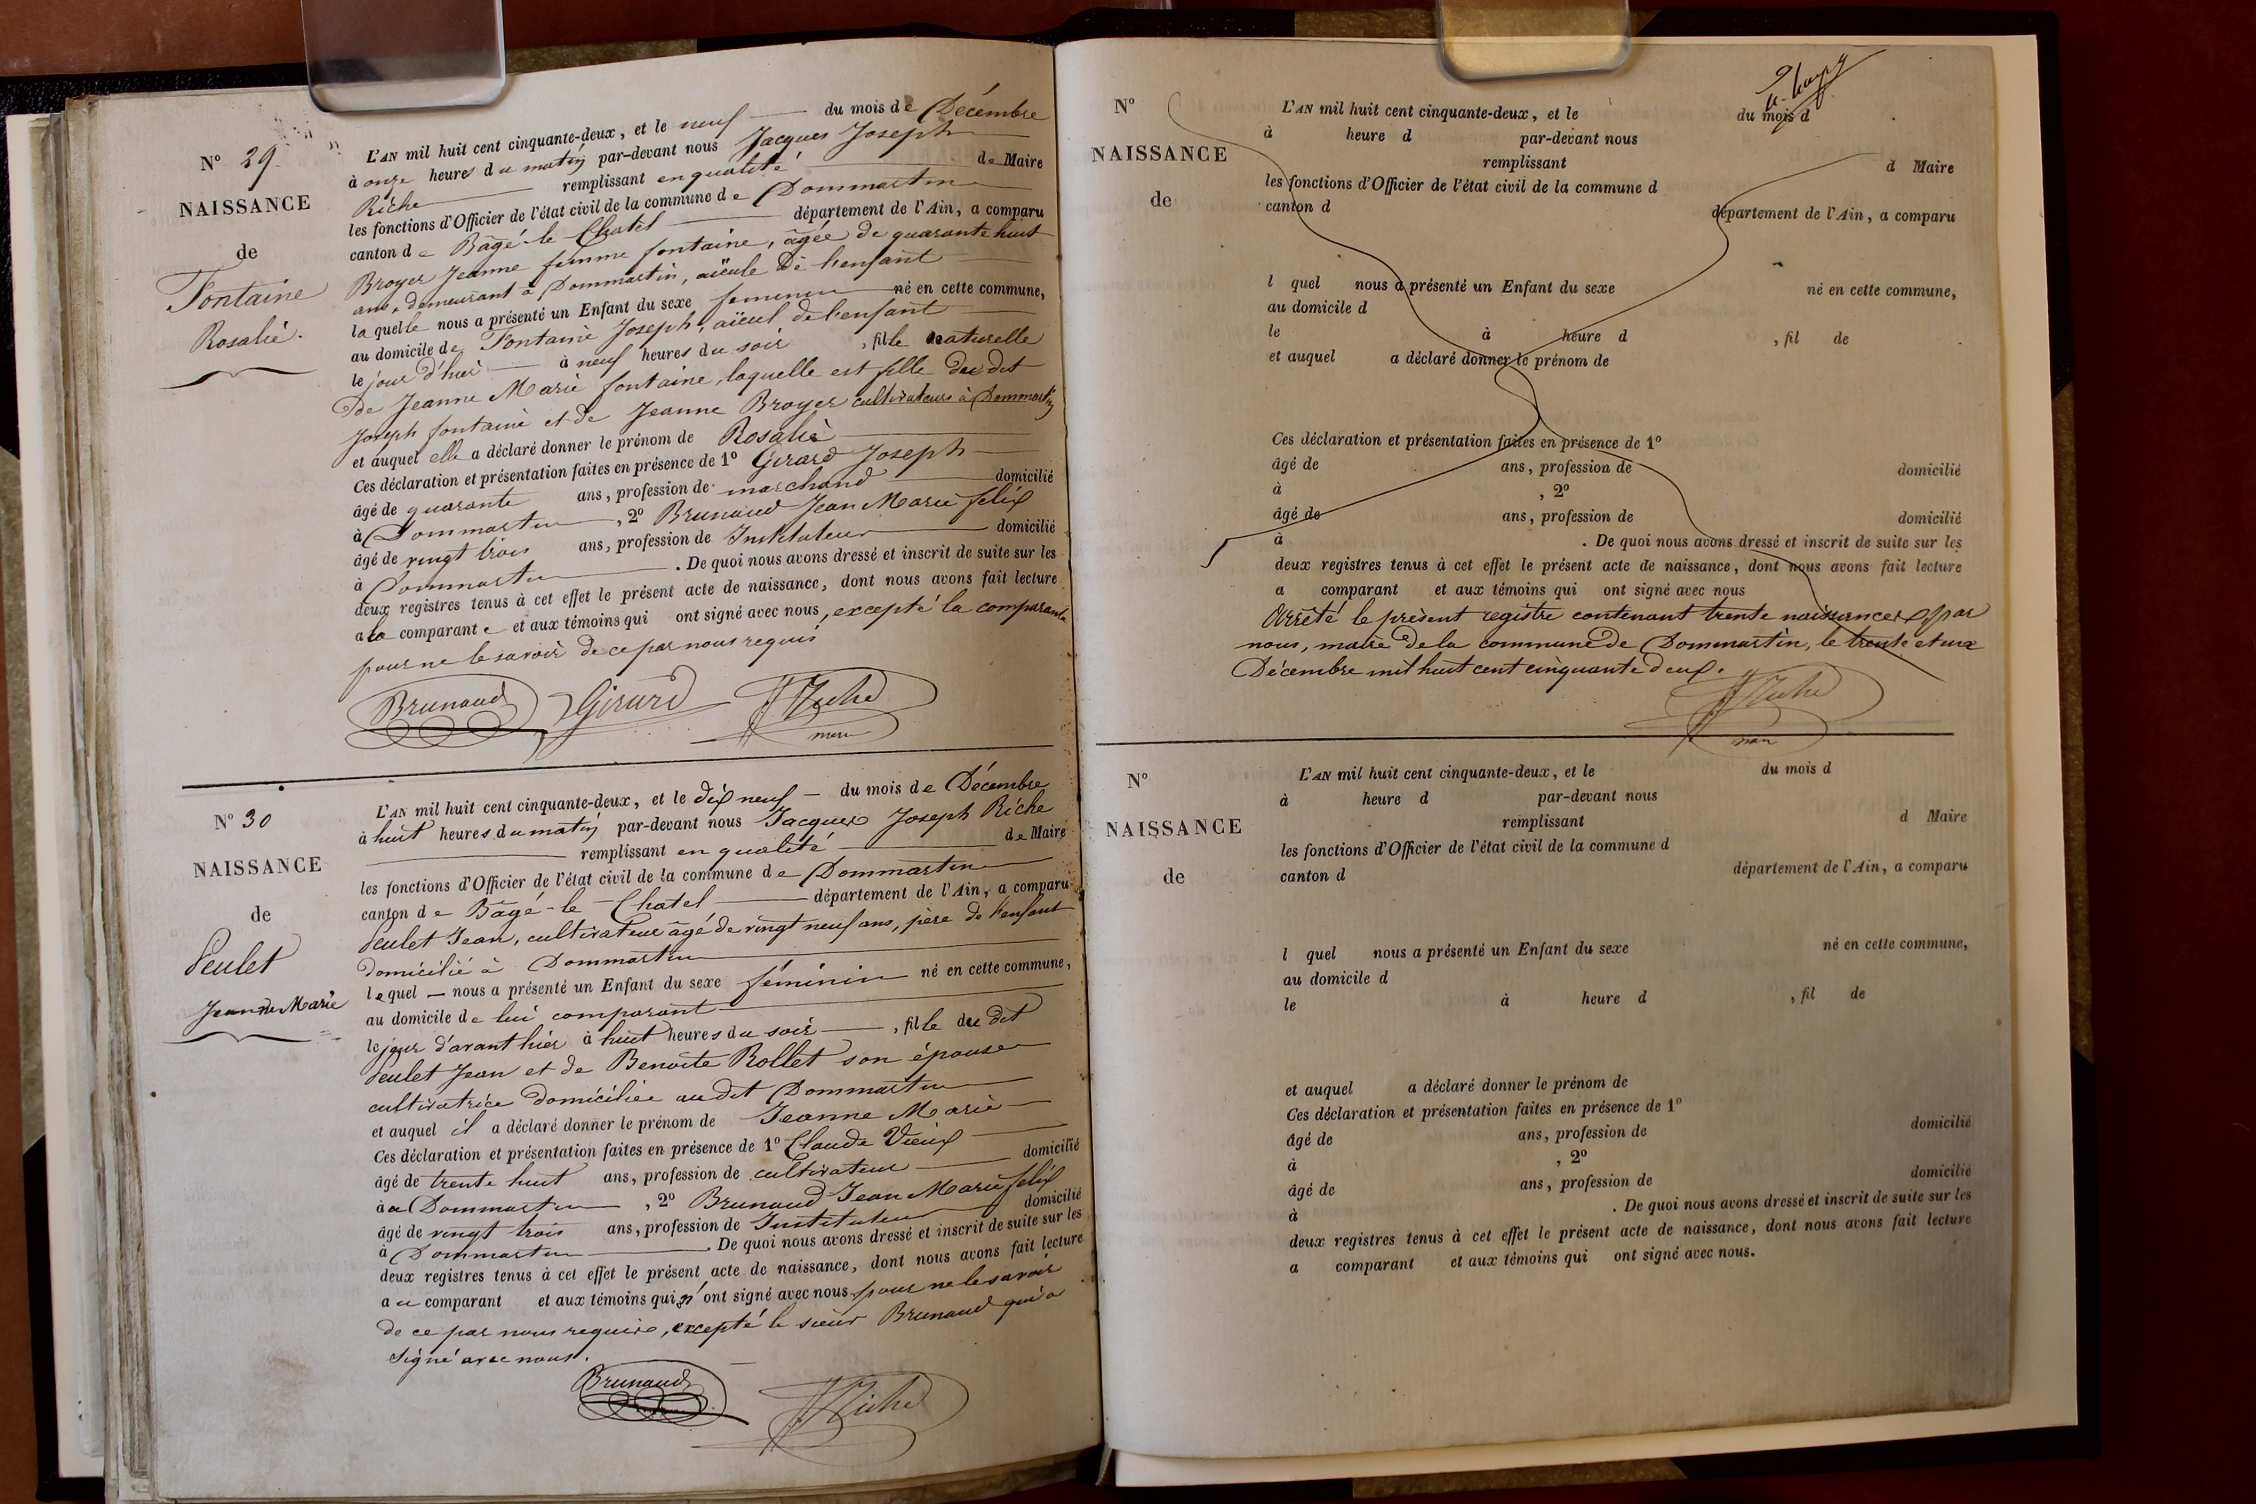 N° 29
NAISSANCE
de
Fontaine
Rosalie.
L'AN mil huit cent cinquante-deux, et le neuf du mois de Décembre
à onze heures du matin par-devant nous Jacques Joseph
Riche remplissant en qualité de Maire
les fonctions d'Officier de l'état civil de la commune de Dommartin
canton de Bâgé-le-Chatel département de l'Ain, a comparu
Broyer Jeanne femme fontaine, âgée de quarante huit
ans, demeurant à Dommartin, aïeule de l'enfant
laquelle nous a présenté un Enfant du sexe feminin né en cette commune,
au domicile de Fontaine Joseph, aïeul de l'enfant
le jour d'hier à neuf heures du soir , fille naturelle
de Jeanne Marie fontaine, laquelle est fille du dit
Joseph fontaine et de Jeanne Broyer cultivateurs à Dommartin
et auquel elle a déclaré donner le prénom de Rosalie
Ces déclaration et présentation faites en présence de 1° Girard Joseph
âgé de quarante ans, profession de marchand domicilié
à Dommartin , 2° Brunaud Jean Marie felix
âgé de vingt trois ans, profession de Instituteur domicilié
à Dommartin . De quoi nous avons dressé et inscrit de suite sur les
deux registres tenus à cet effet le présent acte de naissance, dont nous avons fait lecture
a la comparante et aux témoins qui ont signé avec nous, excepté la comparante
pour ne le savoir de ce par nous requis
Brunaud Girard JJ Riche
maire
N° 30
NAISSANCE
de
Peulet
Jeanne Marie
L'AN mil huit cent cinquante-deux, et le dix neuf du mois de Décembre
à huit heures du matin par-devant nous Jacques Joseph Riche
remplissant en qualité de Maire
les fonctions d'Officier de l'état civil de la commune de Dommartin
canton de Bâgé-le-Chatel département de l'Ain, a comparu
Peulet Jean, cultivateur âgé de vingt neuf ans, père de l'enfant
domicilié à Dommartin
lequel nous a présenté un Enfant du sexe féminin né en cette commune,
au domicile de lui comparant
le jour d'avant hier à huit heures du soir , fille du dit
Peulet Jean et de Benoite Rollet son épouse
cultivatrice domiciliée au dit Dommartin
et auquel il a déclaré donner le prénom de Jeanne Marie
Ces déclaration et présentation faites en présence de 1° Claude Vieux
âgé de trente huit ans, profession de cultivateur domicilié
à Dommartin , 2° Brunaud Jean Marie felix
âgé de vingt trois ans, profession de Instituteur domicilié
à Dommartin . De quoi nous avons dressé et inscrit de suite sur les
deux registres tenus à cet effet le présent acte de naissance, dont nous avons fait lecture
au comparant et aux témoins qui n'ont signé avec nous pour ne le savoir
de ce par nous requis, excepté le sieur Brunaud qui a
signé avec nous.
Brunaud JJ Riche
N°
NAISSANCE
de
L'AN mil huit cent cinquante-deux, et le du mois d
à heure d par-devant nous
remplissant d Maire
les fonctions d'Officier de l'état civil de la commune d
canton d département de l'Ain, a comparu
l quel nous a présenté un Enfant du sexe né en cette commune,
au domicile d
le à heure d , fil de
et auquel a déclaré donner le prénom de
Ces déclaration et présentation faites en présence de 1°
âgé de ans, profession de domicilié
à , 2°
âgé de ans, profession de domicilié
à . De quoi nous avons dressé et inscrit de suite sur les
deux registres tenus à cet effet le présent acte de naissance, dont nous avons fait lecture
a comparant et aux témoins qui ont signé avec nous
Arrêté le présent registre contenant trente naissances, par
nous, maire de la commune de Dommartin, le trente et un
Décembre mil huit cent cinquante deux.
JJ Riche
N°
NAISSANCE
de
L'AN mil huit cent cinquante-deux, et le du mois d
à heure d par-devant nous
remplissant d Maire
les fonctions d'Officier de l'état civil de la commune d
canton d département de l'Ain, a comparu
l quel nous a présenté un Enfant du sexe né en cette commune,
au domicile d
le à heure d , fil de
et auquel a déclaré donner le prénom de
Ces déclaration et présentation faites en présence de 1°
âgé de ans, profession de domicilié
à , 2°
âgé de ans, profession de domicilié
à . De quoi nous avons dressé et inscrit de suite sur les
deux registres tenus à cet effet le présent acte de naissance, dont nous avons fait lecture
a comparant et aux témoins qui ont signé avec nous.